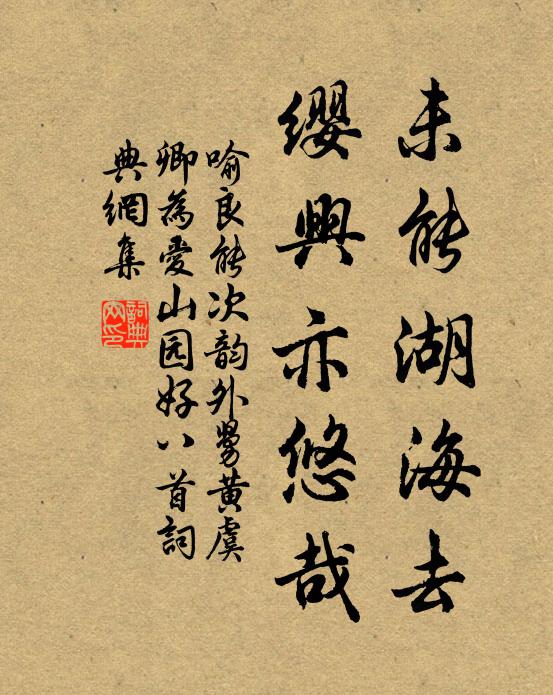 未能湖海去
缨興亦悠哉
喻良能次韵外舅黄虞
卿為愛山园好八首詞
典網集
詞典
网印